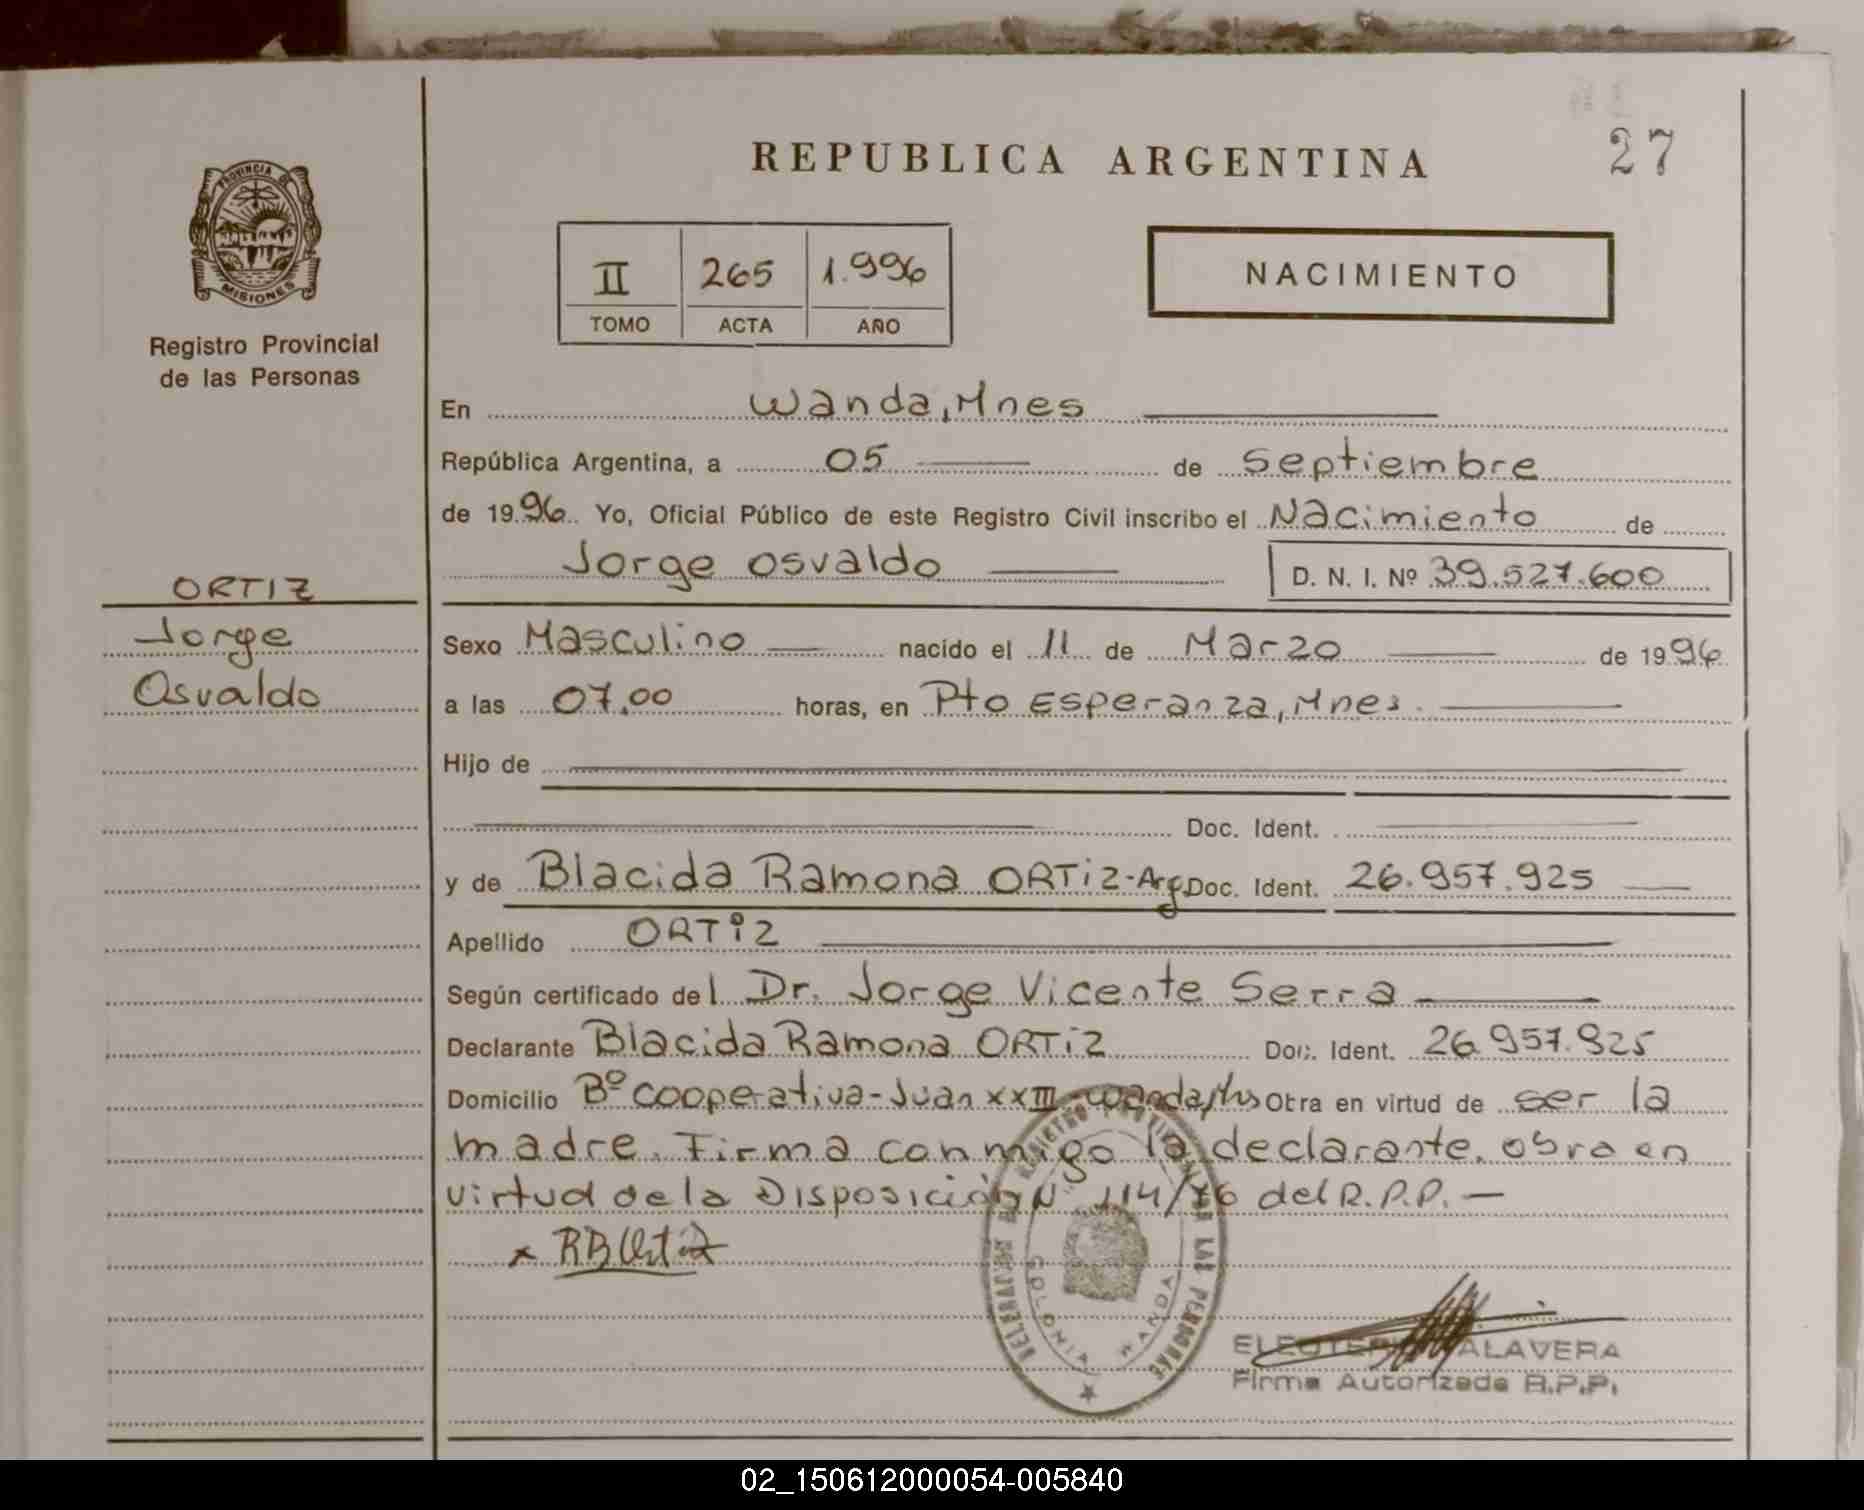 27
REPUBLICA ARGENTINA
PROVINCIA DE
MISIONES
Registro Provincial
de las Personas
II 265 1.996
TOMO ACTA AÑO
NACIMIENTO
En Wanda, Mnes
República Argentina, a 05 de Septiembre
de 1996 Yo, Oficial Público de este Registro Civil inscribo el Nacimiento de
Jorge Osvaldo D. N. I. Nº 39.527.600
ORTIZ
Jorge
Osvaldo
Sexo Masculino nacido el 11 de Marzo de 1996
a las 07,00 horas, en Pto Esperanza, Mnes.
Hijo de
Doc. Ident.
y de Blacida Ramona ORTiz-Arg. Doc. Ident. 26.957.925
Apellido ORTiz
Según certificado del Dr. Jorge Vicente Serra
Declarante Blacida Ramona ORTiz Doc. Ident. 26.957.925
Domicilio Bº Cooperativa-Juan XXIII-Wanda, Obra en virtud de ser la
madre. Firma conmigo la declarante. obra en
virtud de la Disposición Nº 114/76 del R.P.P. —
x RBOrtiz
COLONIA WANDA
ALAVERA
Firma Autorizada R.P.P.
02_150612000054-005840